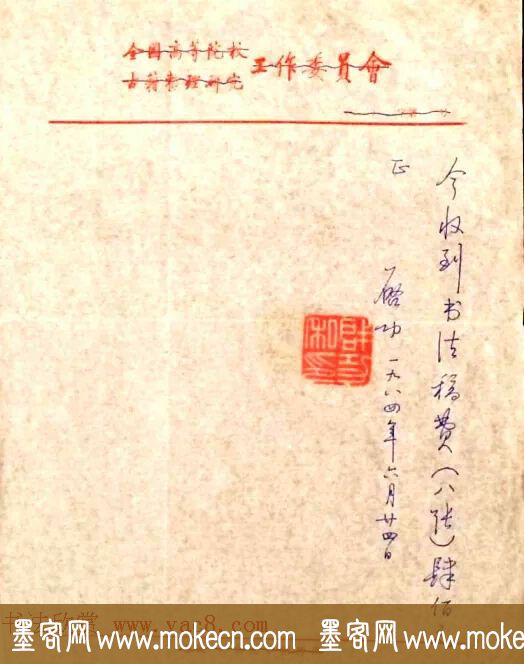 全国高等院校
古籍整理研究 工作委員會
今收到书法稿费（八张）肆佰
正
启功 一九八四年六月廿四日
书法欣赏 www.yac8.com
墨客网 www.mokecn.com 墨客网 www.mokecn.com 墨客网